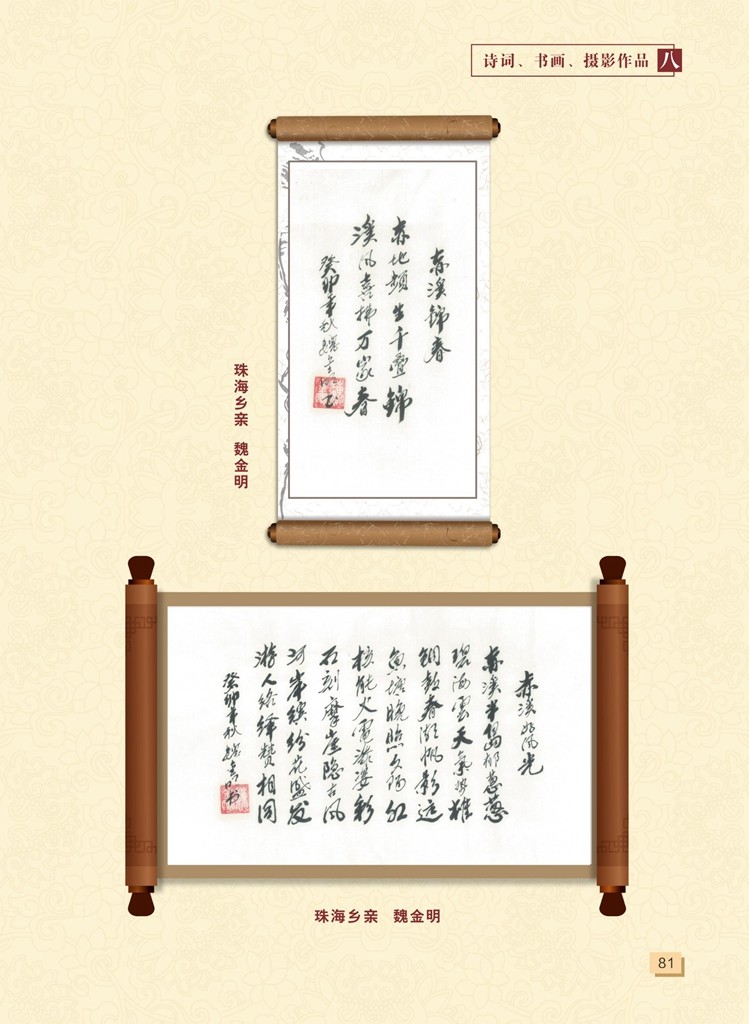 诗词、书画、摄影作品 八
赤溪锦春
赤地频生千叠锦
溪风喜拂万家春
癸卯年秋魏金明书
珠海乡亲 魏金明
赤溪好风光
赤溪半岛郁葱葱
碧海云天气势雄
铜鼓春潮帆影远
鱼塘晚照夕阳红
核能火电添姿彩
石刻摩崖隐古风
河岸缤纷花盛发
游人络绎赞相同
癸卯年秋魏金明书
珠海乡亲 魏金明
81